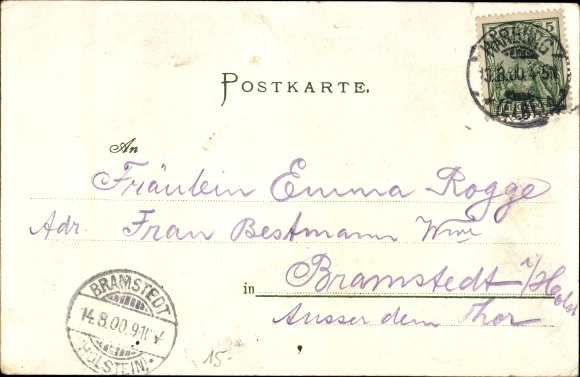 5
HARBURG
13.8.00.4-5N
(ELBE)
POSTKARTE.
An
Fräulein Emma Rogge
Adr. Frau Bestmann Wwe
in Bramstedt i/Holst
Ausser dem Thor
BRAMSTEDT
14.8.00.9
(HOLSTEIN)
15